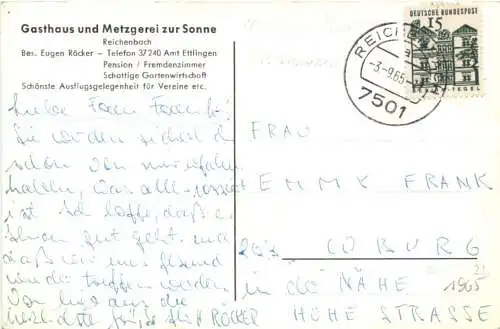 Gasthaus und Metzgerei zur Sonne
Reichenbach
Bes. Eugen Röcker - Telefon 37240 Amt Ettlingen
Pension / Fremdenzimmer
Schattige Gartenwirtschaft
Schönste Ausflugsgelegenheit für Vereine etc.
DEUTSCHE BUNDESPOST
15
TEGEL
REICHEN
-3.-9.65-
7501
Liebe Frau
Sie werden sicher
schon von
haben, was alles
ist Ich hoffe, daß es
Ihnen gut geht und
daß wir uns gesund
wieder treffen werden
Von hier aus die
herzlichste Grüße RÖCKER
FRAU
EMMY FRANK
COBURG
in die NÄHE
HOHE STRASSE
21
1965